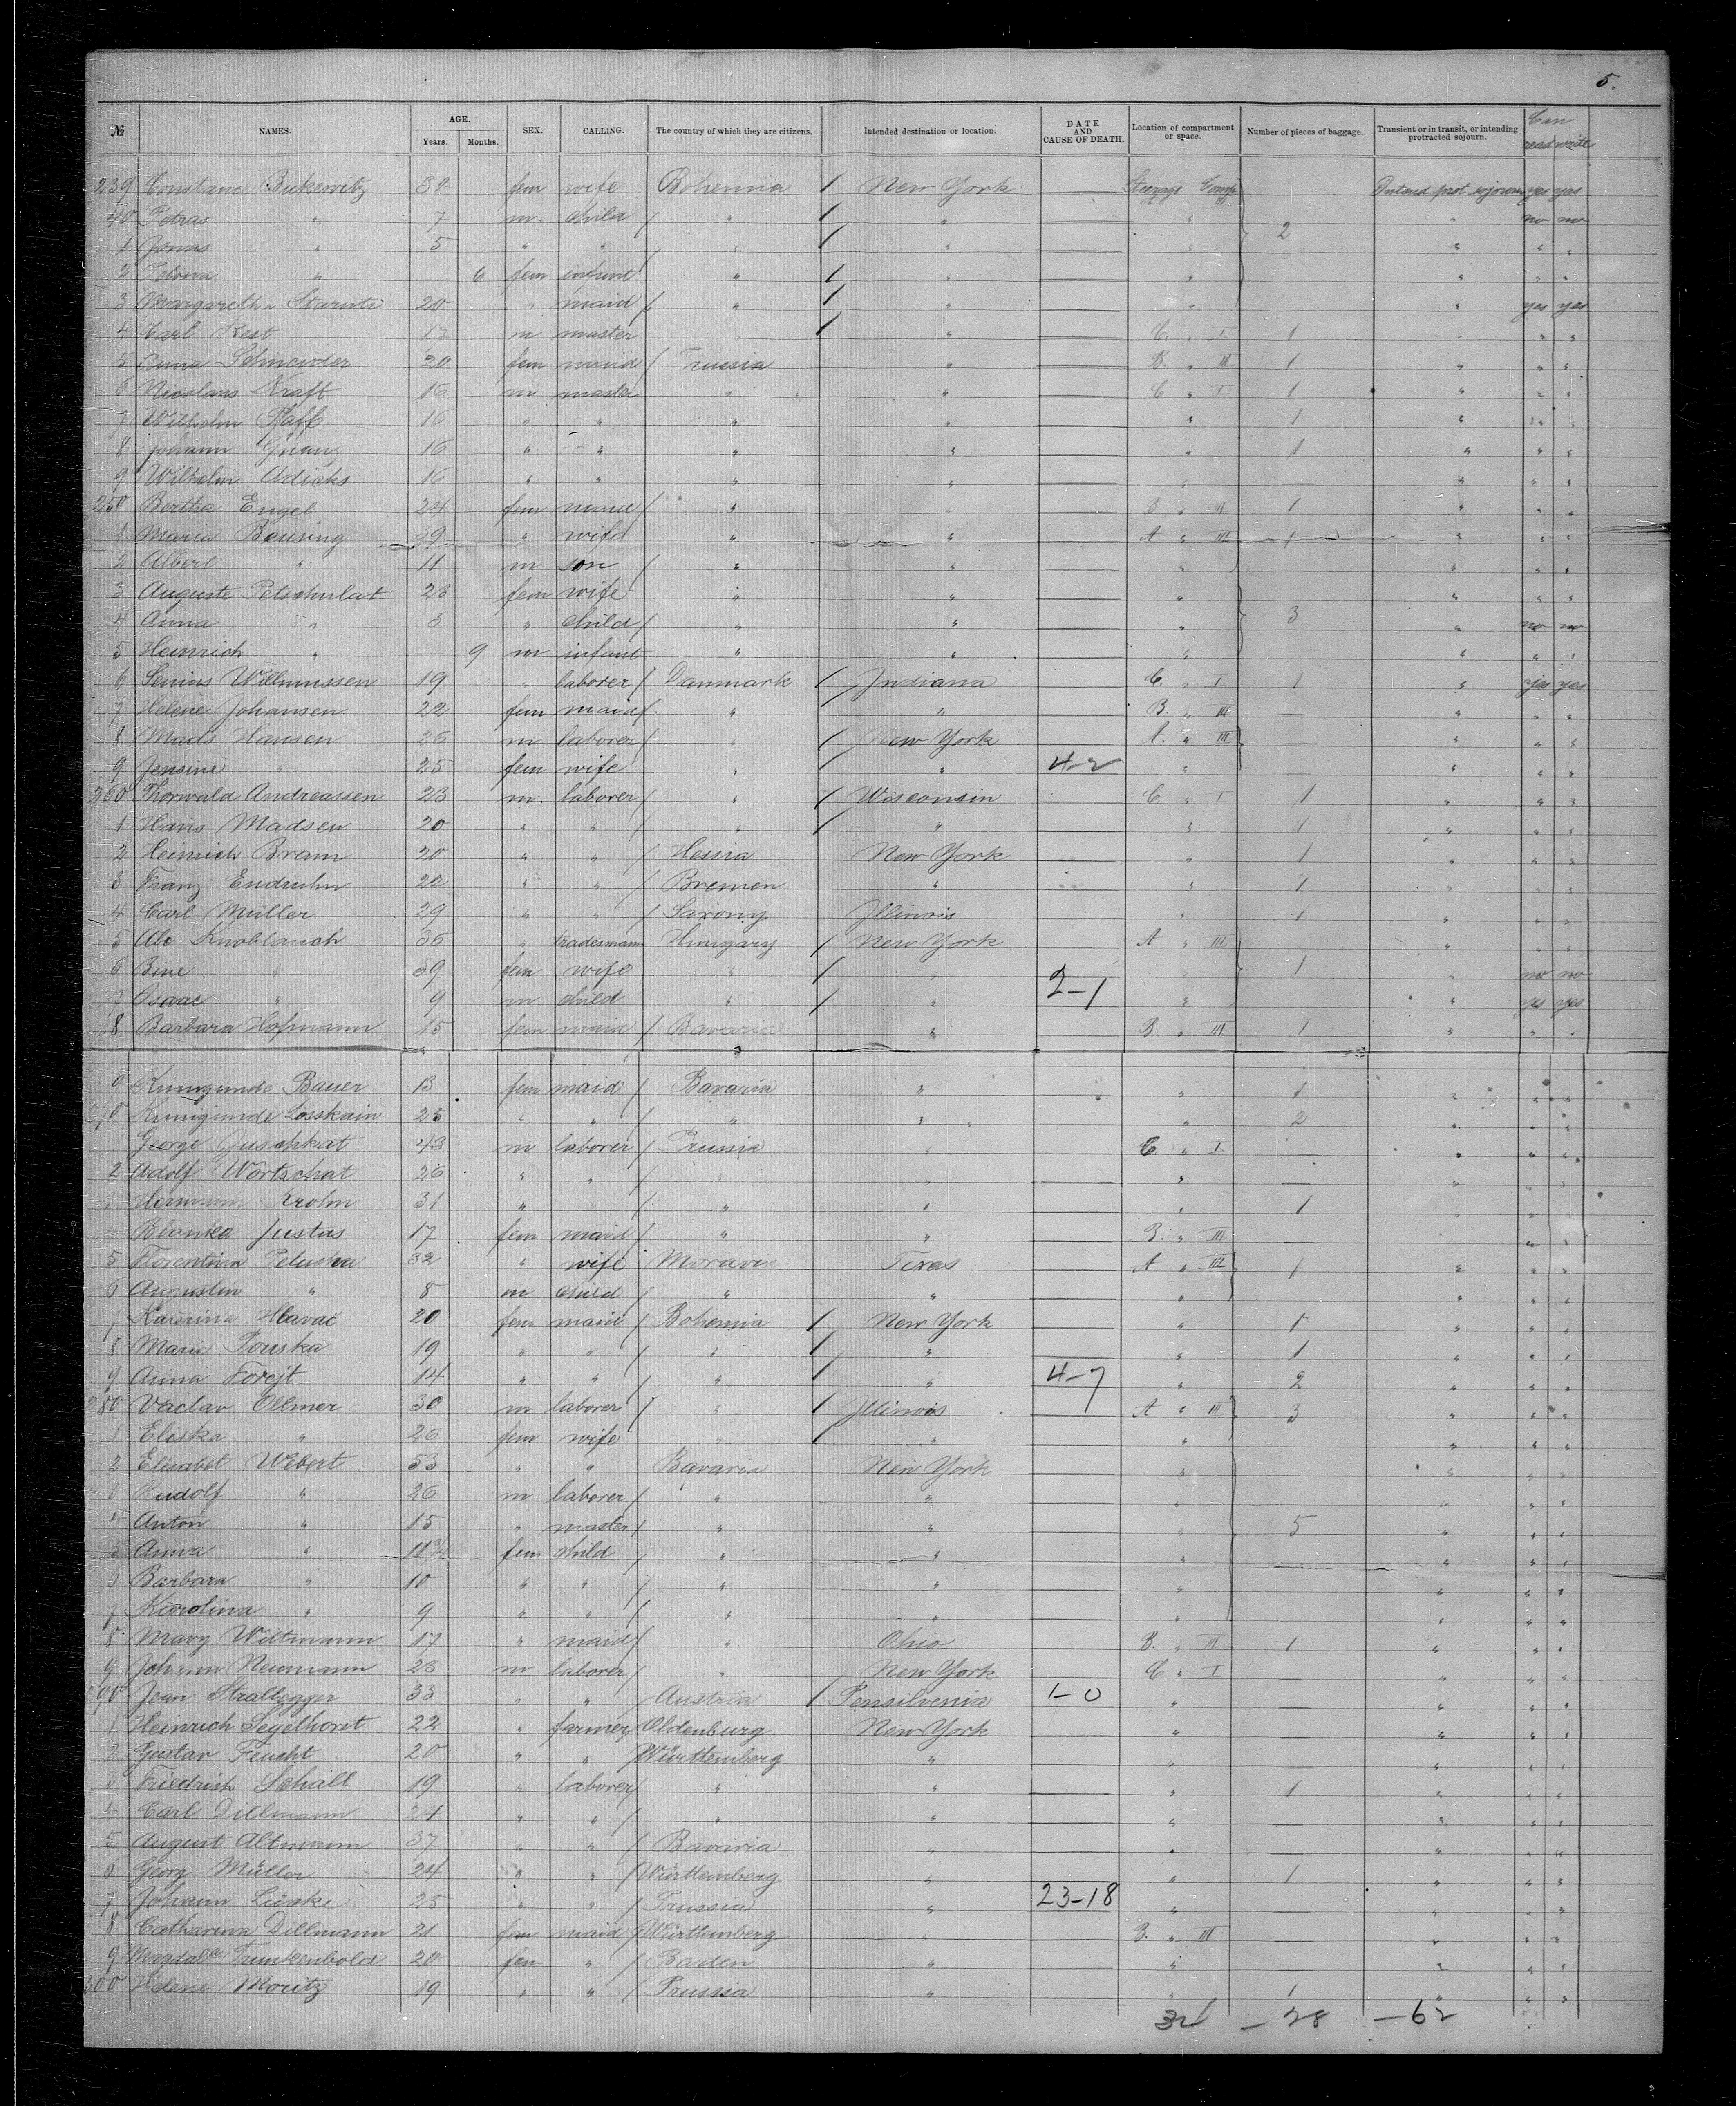 5.
№ NAMES. AGE. Years. Months. SEX. CALLING. The country of which they are citizens. Intended destination or location. DATE AND CAUSE OF DEATH. Location of compartment or space. Number of pieces of baggage. Transient or in transit, or intending protracted sojourn. Can read write
239 Constance Bukewitz fem wife Bohemia / New York — Steerage Comp III Intend prot sojourn yes yes
40 Petras " 7 m. child / " / " — " 2 " no no
1 Jonas " 5 " " " / " — " " " "
2 " 6 fem infant / " / " — " " " "
3 Margaretha 20 " maid / " / " — " " yes yes
4 Carl Rest 17 m master / " — C. " I 1 " " "
5 Anna Schneider 20 fem maid / Prussia " — B. " III 1 " " "
6 Nicolaus Kraft 16 m master " " — C " I 1 " " "
7 Wilhelm Pfaff 16 " " " " — " 1 " " "
8 Johann Gnanz 16 " " " " — " 1 " " "
9 Wilhelm Adicks 16 " " " " — " — " " "
250 Bertha Engel 24 fem maid / " " — B " III 1 " " "
1 Maria Beusing 39 " wife " " — A " III 1 " " "
2 Albert " 11 m son / " " — " " " "
3 Auguste Petschulat 28 fem wife " " — " 3 " " "
4 Anna " 3 " child / " " — " " no no
5 Heinrich " — 9 m infant " " — " " " "
6 Willumssen 19 " laborer / Danmark / Indiana — C. " I 1 " yes yes
7 Helene Johansen 22 fem maid / " " — B. " III — " " "
8 Mads Hansen 26 m laborer / " / New York — A. " III — " " "
9 Jensine " 25 fem wife " / " 4-2 " " " "
260 Thorwald Andreassen 23 m. laborer / " / Wisconsin — C " I 1 " " "
1 Hans Madsen 20 " " / " / " — " 1 " " "
2 Heinrich Bram 20 " " / Hessia New York — " 1 " " "
3 Franz Endruhn 22 " " / Bremen " — " 1 " " "
4 Carl Müller 29 " " / Saxony Illinois — " 1 " " "
5 Abe Knoblauch 36 " tradesmann Hungary / New York — A " III 1 " " "
6 Bine " 39 fem wife " / " — " " no no
7 Isaac " 9 m child " / " 2-1 " " yes yes
8 Barbara Hofmann 15 fem maid / Bavaria " — B " III 1 " " "
9 Kunigunde Bauer 13 fem maid / Bavaria " — " 1 " " "
270 Kunigunde Losskain 25 " " / " " — " 2 " " "
1 George Juschkat 43 m laborer / Prussia " — C " I — " " "
2 Adolf Wortschat 26 " " / " " — " — " " "
3 Hermann Krohn 31 " " / " " — " 1 " " "
4 Blanka Justus 17 fem maid / " " — B. " III — " "
5 Florentina Peluska 32 " wife Moravia Texas — A " III 1 " " "
6 Augustin " 8 m child " " — " " " "
7 Katerina Hlavač 20 fem maid / Bohemia / New York — " 1 " " "
8 Maria Pouska 19 " " / " / " — " 1 " " "
9 Anna Forejt 14 " " / " / " 4-7 " 2 " " "
280 Vaclav Ollmer 30 m laborer / " / Illinois — A " III 3 " " "
1 Eliska " 26 fem wife " / " — " " " "
2 Elisabet Webert 53 " " Bavaria New York — " " " "
3 Rudolf " 26 m laborer / " " — " " " "
4 Anton " 15 " master / " " — " 5 " " "
5 Anna " 11 fem child / " " — " " " "
6 Barbara " 10 " " / " " — " " " "
7 Karolina " 9 " " / " " — " " " "
8 Mary Wittmann 17 " maid / " Ohio — B. " III 1 " " "
9 Johann Neumann 23 m laborer / " New York — C " I " " "
290 Jean Strallegger 33 " " / Austria / Pensilvenia 1-0 " — " " "
1 Heinrich Segelhorst 22 " farmer Oldenburg New York — " — " " "
2 Gustav Feucht 20 " " / Württemberg " — " — " " "
3 Friedrich Schall 19 " laborer / " " — " 1 " " "
4 Carl Dillmann 24 " " / " " — " — " " "
5 August Altmann 37 " " / Bavaria " — " — " " "
6 Georg Müller 24 " " / Württemberg " — " 1 " " "
7 Johann 25 " " / Prussia " 23-18 " — " " "
8 Catharina Dillmann 21 fem maid / Württemberg " — B. " III — " " "
9 Magdala Trunkenbold 20 fem " / Baden " — " — " " "
300 Helene Moritz 19 " " / Prussia " — " 1 " " "
32 — 28 — 62